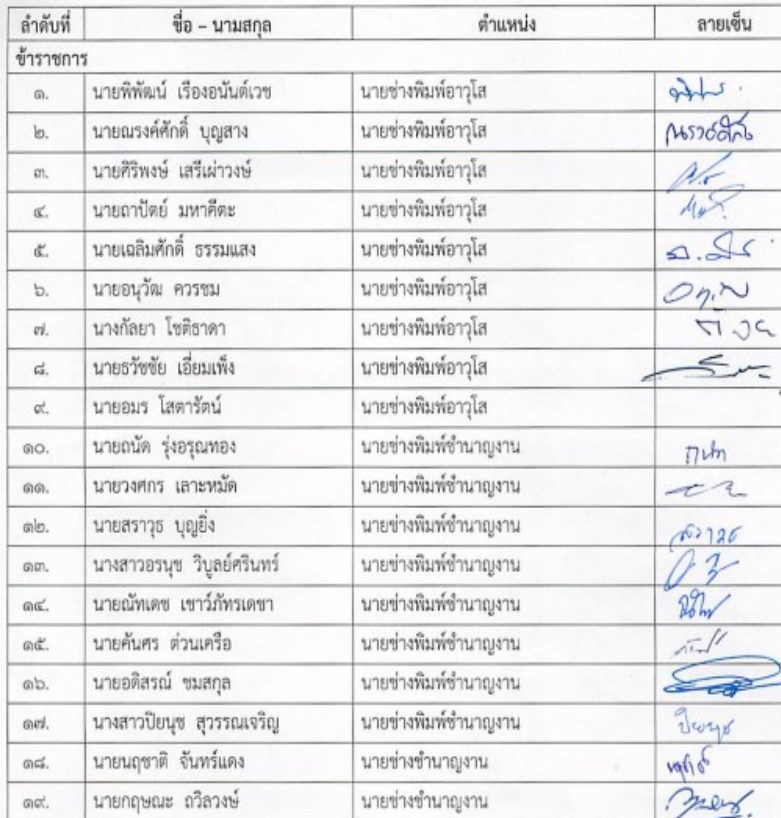 ลำดับที่ ชื่อ – นามสกุล ตำแหน่ง ลายเซ็น
ข้าราชการ
๑. นายพิพัฒน์ เรืองอนันต์เวช นายช่างพิมพ์อาวุโส
๒. นายณรงค์ศักดิ์ บุญสาง นายช่างพิมพ์อาวุโส ณรงค์ศักดิ์
๓. นายศิริพงษ์ เสรีเผ่าวงษ์ นายช่างพิมพ์อาวุโส
๔. นายถาปัตย์ มหาคีตะ นายช่างพิมพ์อาวุโส
๕. นายเฉลิมศักดิ์ ธรรมแสง นายช่างพิมพ์อาวุโส
๖. นายอนุวัฒ ควรชม นายช่างพิมพ์อาวุโส
๗. นางกัลยา โชติธาดา นายช่างพิมพ์อาวุโส
๘. นายธวัชชัย เอี่ยมเพ็ง นายช่างพิมพ์อาวุโส
๙. นายอมร โสตารัตน์ นายช่างพิมพ์อาวุโส
๑๐. นายถนัด รุ่งอรุณทอง นายช่างพิมพ์ชำนาญงาน
๑๑. นายวงศกร เลาะหมัด นายช่างพิมพ์ชำนาญงาน
๑๒. นายสราวุธ บุญยิ่ง นายช่างพิมพ์ชำนาญงาน
๑๓. นางสาวอรนุช วิบูลย์ศรินทร์ นายช่างพิมพ์ชำนาญงาน
๑๔. นายณัทเดช เชาว์ภัทรเดชา นายช่างพิมพ์ชำนาญงาน
๑๕. นายคันศร ต่วนเครือ นายช่างพิมพ์ชำนาญงาน
๑๖. นายอดิสรณ์ ชมสกุล นายช่างพิมพ์ชำนาญงาน
๑๗. นางสาวปิยนุช สุวรรณเจริญ นายช่างพิมพ์ชำนาญงาน ปิยนุช
๑๘. นายนฤชาติ จันทร์แดง นายช่างชำนาญงาน
๑๙. นายกฤษณะ ถวิลวงษ์ นายช่างชำนาญงาน